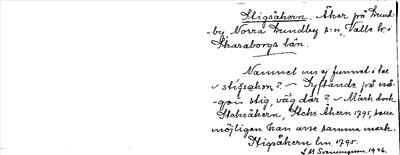 Stigsåkern. Åker på Lund-
by, Norra Lundby s:n, Valle hd i
Skaraborgs län.
Namnet un ej funnet i
stigsakern? – Syftande på nå-
gon stig, väg där? – Märk dock
Stehsåkern, Stehs Åkern 1795, som
möjligen kan avse samma mark.
Stigåkern lm. 1795.
S M Svenningsson. 1946.